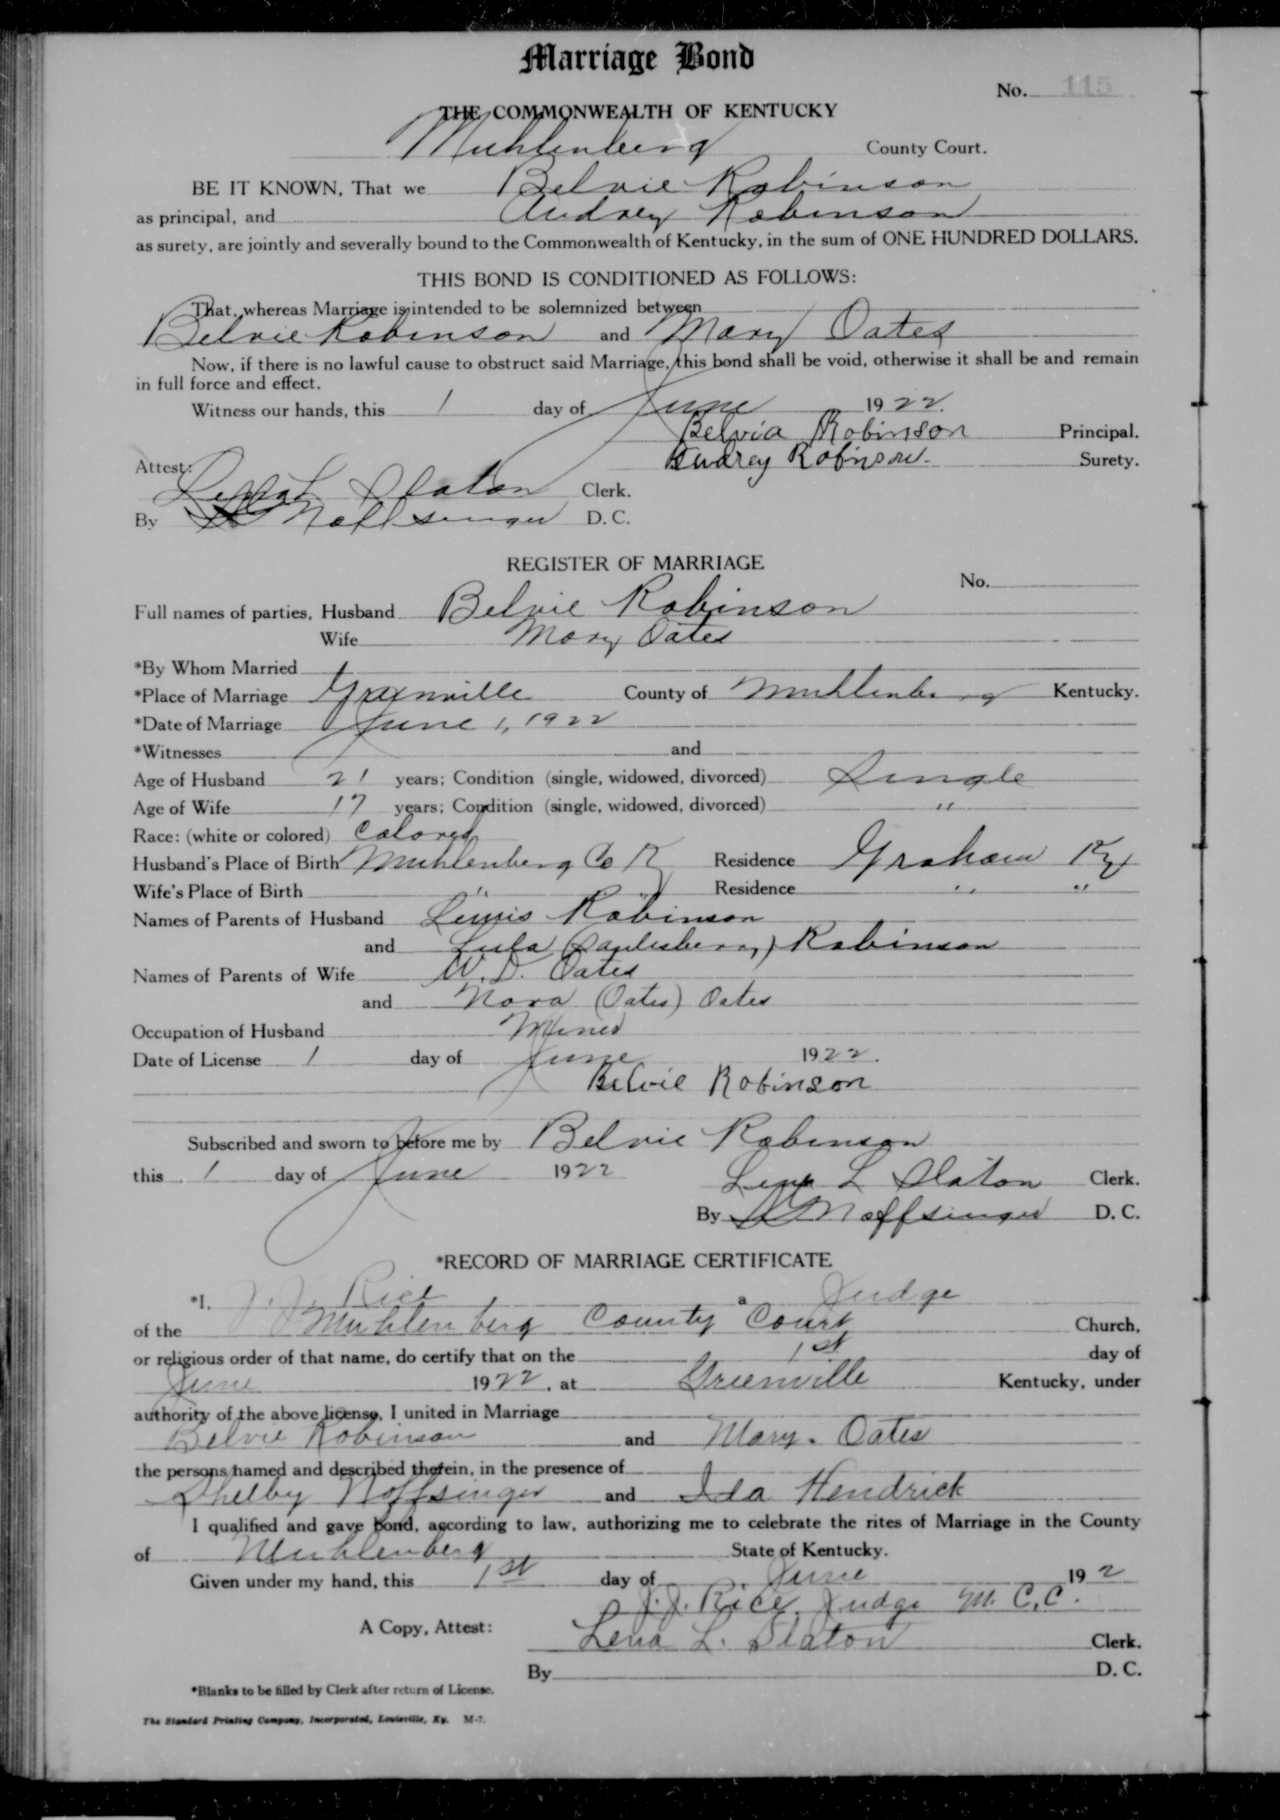 Marriage Bond
No. 115
THE COMMONWEALTH OF KENTUCKY
Muhlenberg County Court.
BE IT KNOWN, That we Belvie Robinson
as principal, and Audrey Robinson
as surety, are jointly and severally bound to the Commonwealth of Kentucky, in the sum of ONE HUNDRED DOLLARS.
THIS BOND IS CONDITIONED AS FOLLOWS:
That, whereas Marriage is intended to be solemnized between
Belvie Robinson and Mary Oates
Now, if there is no lawful cause to obstruct said Marriage, this bond shall be void, otherwise it shall be and remain
in full force and effect.
Witness our hands, this 1 day of June 1922.
Belvia Robinson Principal.
Audrey Robinson. Surety.
Attest:
Lena L Slaton Clerk.
By Noffsinger D. C.
REGISTER OF MARRIAGE
No.
Full names of parties, Husband Belvie Robinson
Wife Mary Oates
*By Whom Married
*Place of Marriage Greenville County of Muhlenberg Kentucky.
*Date of Marriage June 1, 1922
*Witnesses and
Age of Husband 21 years; Condition (single, widowed, divorced) Single
Age of Wife 17 years; Condition (single, widowed, divorced) "
Race: (white or colored) Colored
Husband's Place of Birth Muhlenberg Co K Residence Graham Ky
Wife's Place of Birth " " Residence " "
Names of Parents of Husband Lewis Robinson
and Lula Robinson
Names of Parents of Wife W. D. Oates
and Nora (Oates) Oates
Occupation of Husband Miner
Date of License 1 day of June 1922.
Belvie Robinson
Subscribed and sworn to before me by Belvie Robinson
this 1 day of June 1922
Lena L Slaton Clerk.
By Noffsinger D. C.
*RECORD OF MARRIAGE CERTIFICATE
*I, J. J. Rice a Judge
of the Muhlenberg County Court Church,
or religious order of that name, do certify that on the 1st day of
June 1922, at Greenville Kentucky, under
authority of the above license, I united in Marriage
Belvie Robinson and Mary. Oates
the persons named and described therein, in the presence of
Shelby Noffsinger and Ida Hendrick
I qualified and gave bond, according to law, authorizing me to celebrate the rites of Marriage in the County
of Muhlenberg State of Kentucky.
Given under my hand, this 1st day of June 192
J. J. Rice, Judge M. C. C.
A Copy, Attest:
Lena L. Slaton Clerk.
By D. C.
*Blanks to be filled by Clerk after return of License.
The Standard Printing Company, Incorporated, Louisville, Ky. M-7.